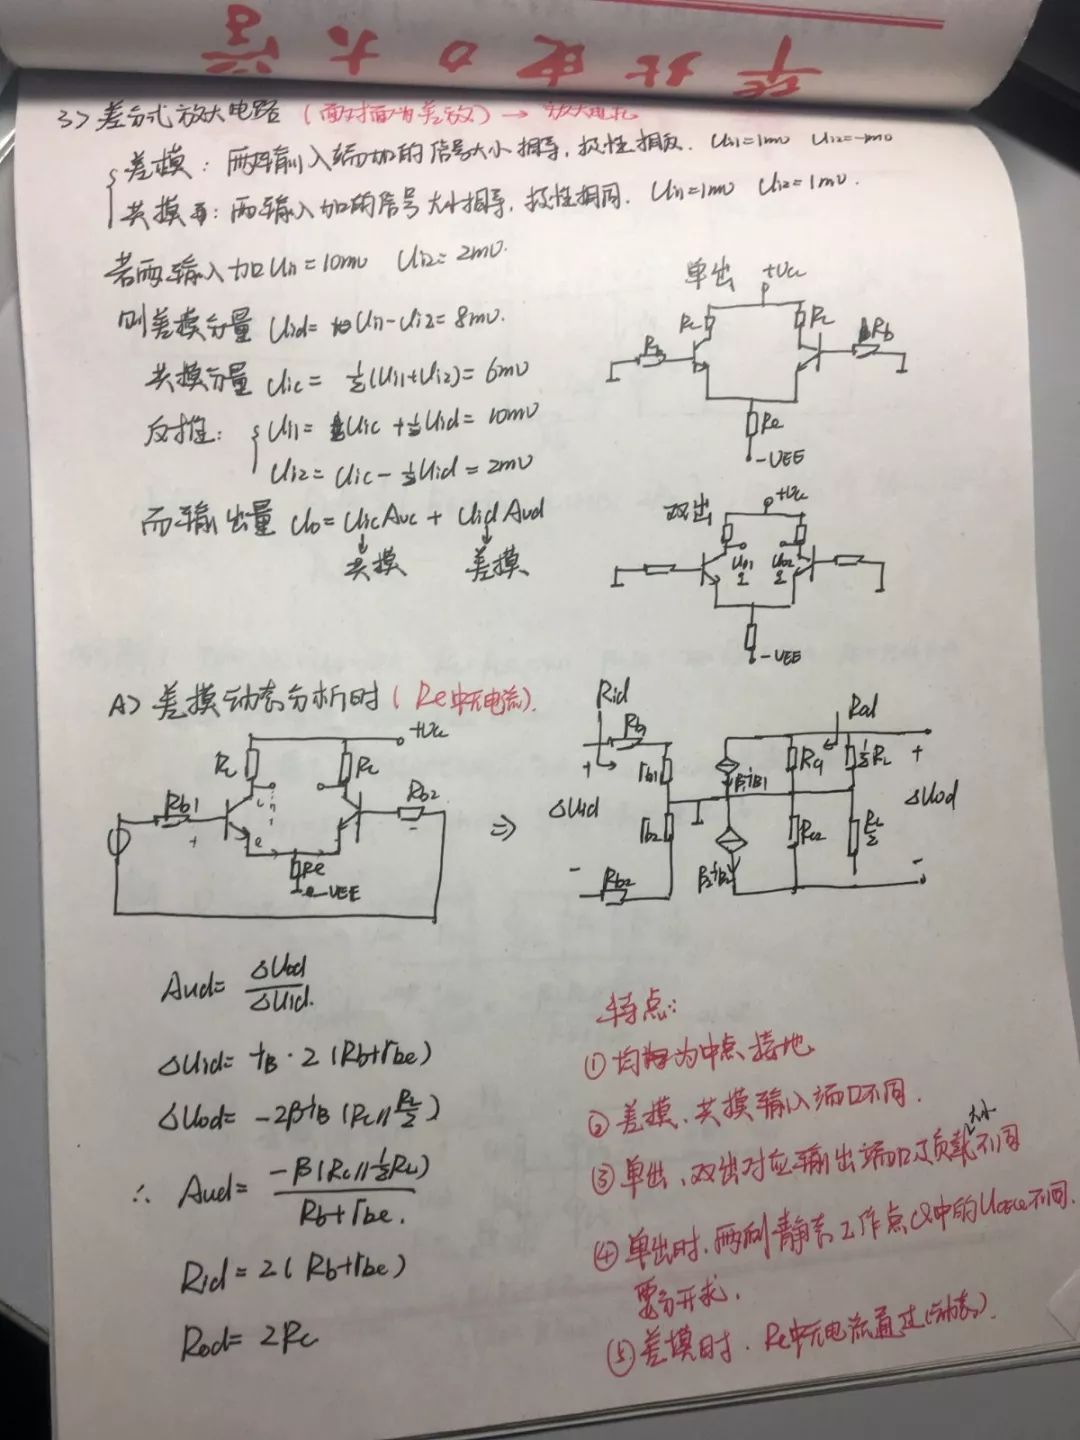 华北电力大学
3> 差分式放大电路 (面对面为差放) →
差模: 两输入端加的信号大小相等,极性相反. Ui1=1mv Ui2=-1mv
共模: 两输入加的信号大小相等,极性相同. Ui1=1mv Ui2=1mv.
若两输入加Ui1=10mv Ui2=2mv.
则差模分量 Uid= Ui1-Ui2=8mv.
共模分量 Uic= ½(Ui1+Ui2)=6mv
反推: Ui1= Uic+½Uid=10mv
Ui2=Uic-½Uid=2mv
而输出量 Uo=UicAuc+UidAud
共模 差模
单出 +Vcc
Rc Rc
Rb Rb
Re
-VEE
双出 +Vcc
Uo1 Uo2
-VEE
A> 差模动态分析时(Re中无电流).
+Vcc
Rc Rc
Rb1 Rb2
+ -
e
Re
-VEE
⇒
Rid Rb Rod
+ rb1 β1iB1 Rc1 ½RL +
ΔUid ΔUod
rb2 β2iB2 Rc2 RL/2
- Rb2 -
Aud= ΔUod/ΔUid.
ΔUid= iB·2(Rb+rbe)
ΔUod= -2βiB(Rc//RL/2)
∴ Aud= -β(Rc//½RL)/(Rb+rbe).
Rid=2(Rb+rbe)
Rod=2Rc
特点:
① 均为中点接地
② 差模、共模输入端口不同.
③ 单出、双出对应输出端口及负载大小不同
④ 单出时,两侧静态工作点Q中的UCEQ不同.
要分开求.
⑤ 差模时,Re中无电流通过(动态).